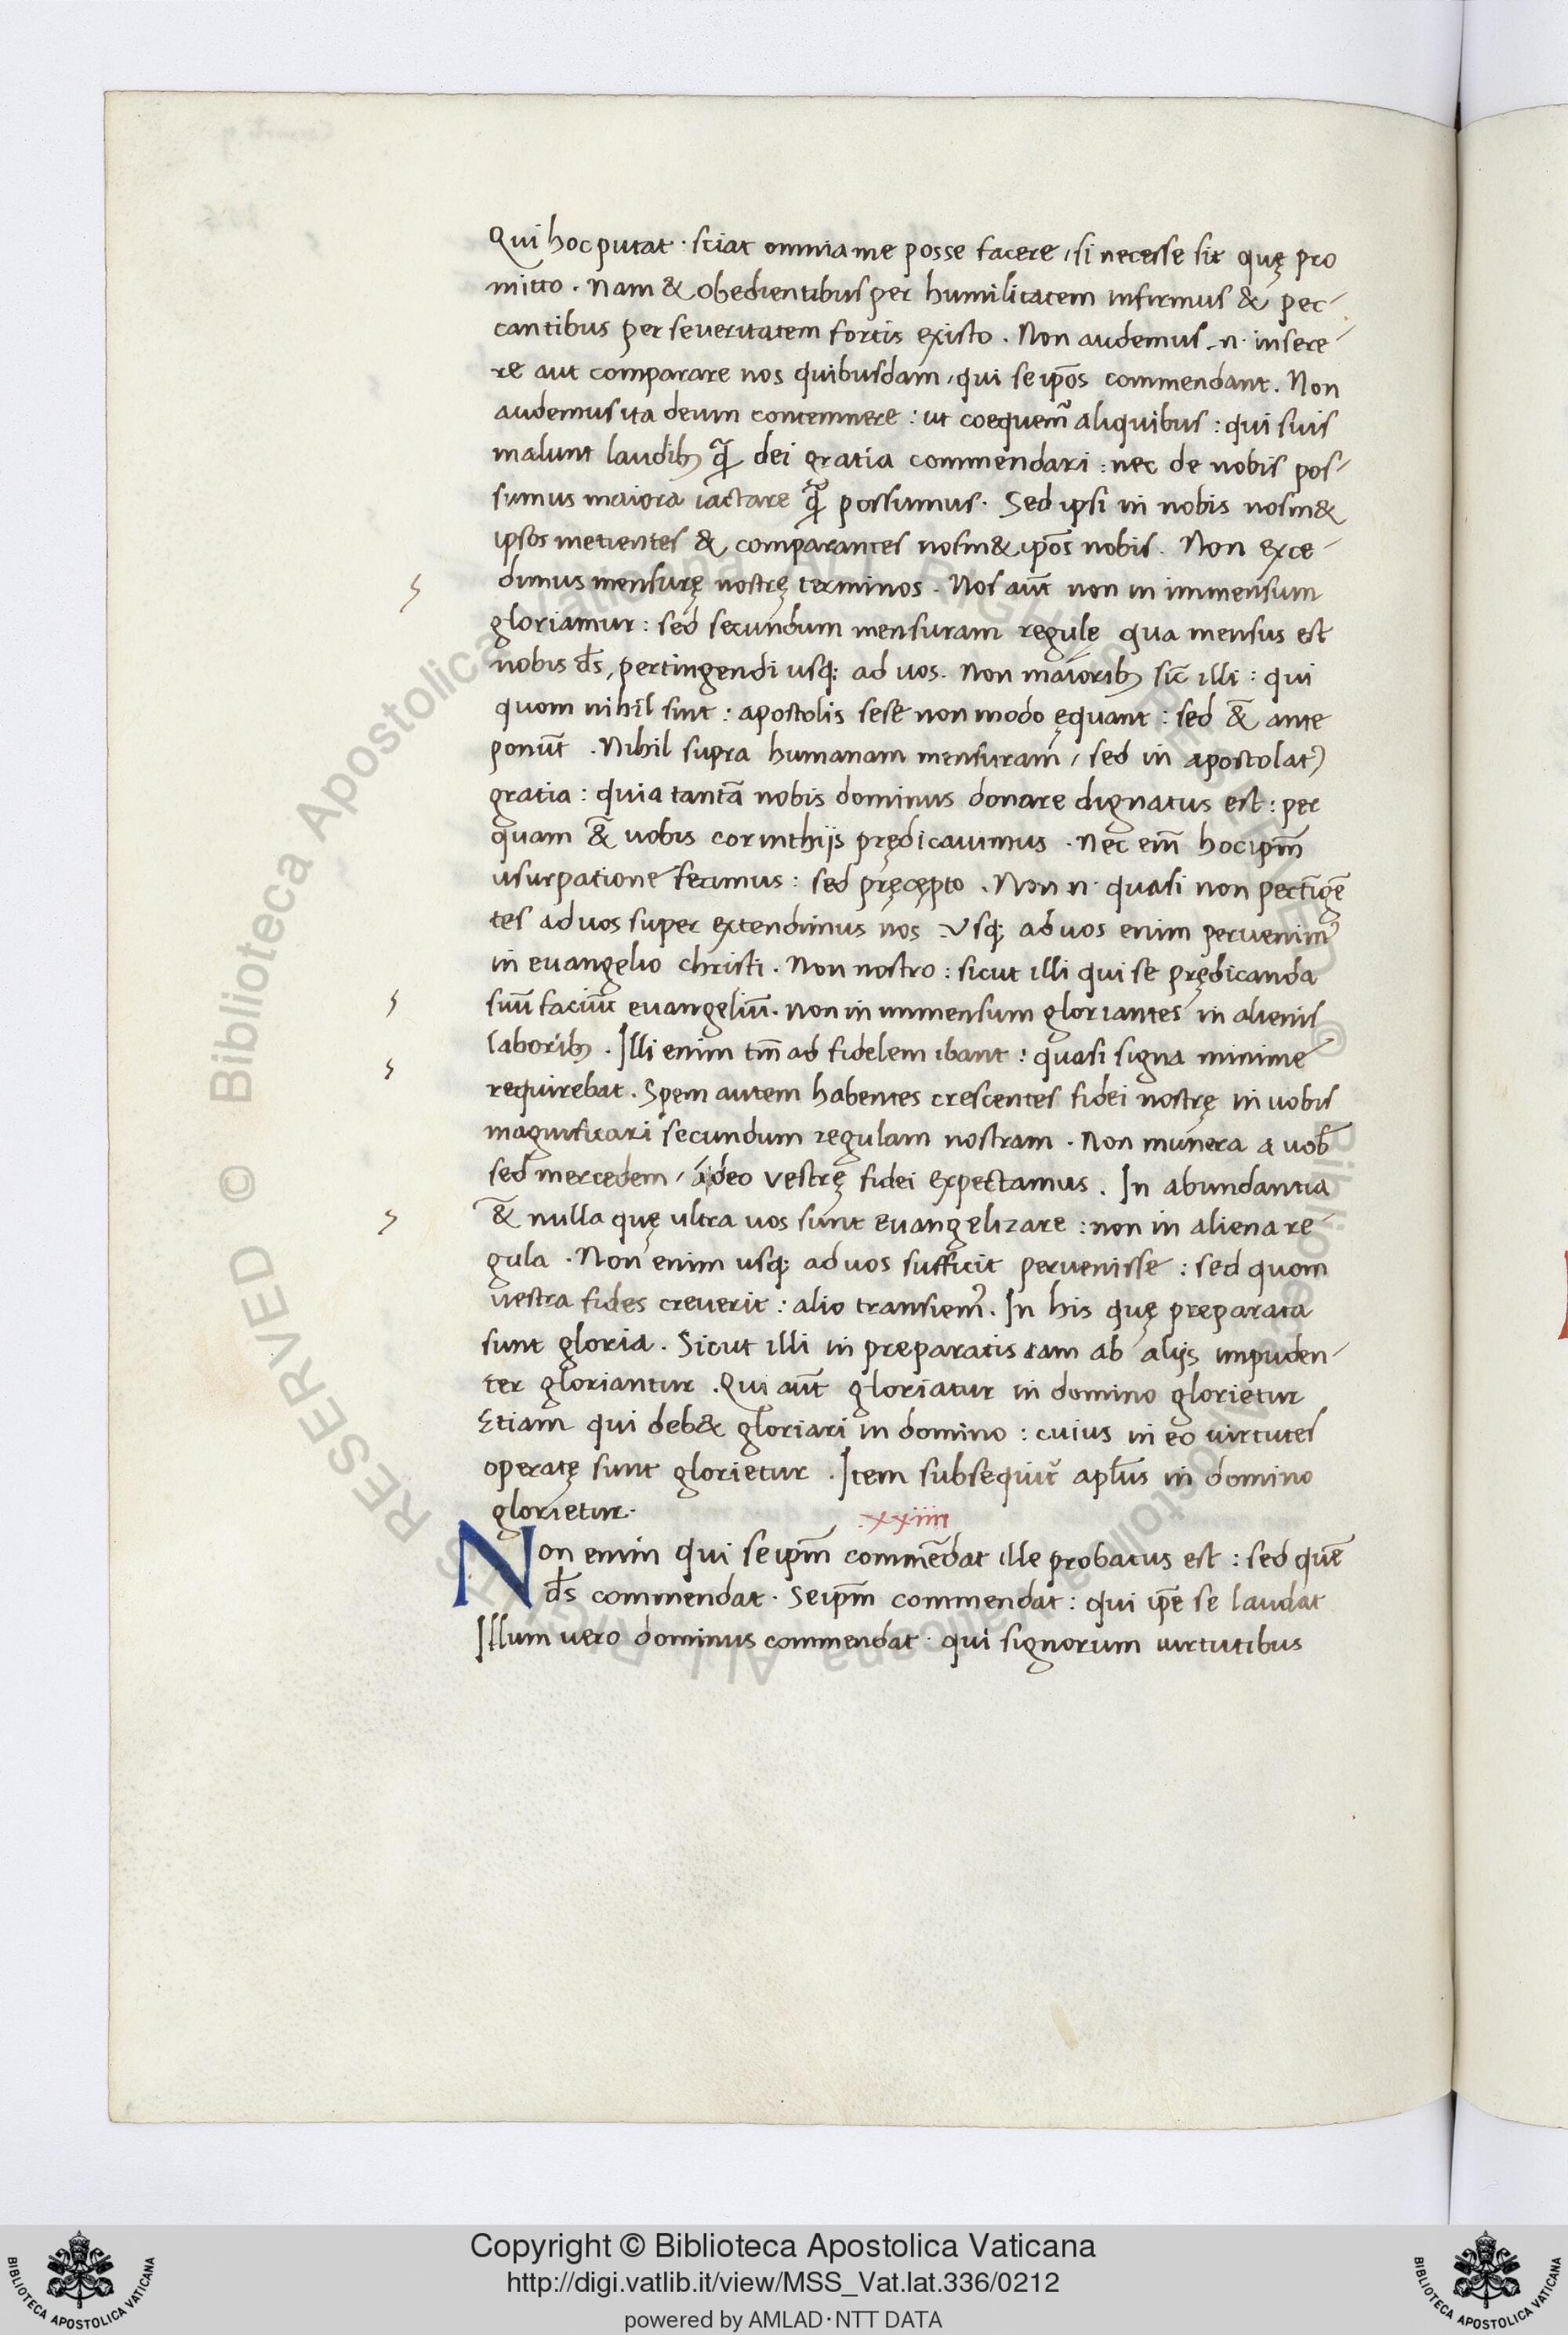 Qui hoc putat · sciat omnia me posse facere, si necesse sit quę pro
mitto . Nam & obedientibus per humilitatem infirmus & pec-
cantibus per seueritatem fortis existo . Non audemus .n. insere-
re aut comparare nos quibusdam, qui se ipõs commendant . Non
audemus ita deum contemnere : ut coequem̃ aliquibus : qui suis
malunt laudibꝫ q̃ dei gratia commendari : nec de nobis pos-
sumus maiora iactare q̃ possumus . Sed ipsi in nobis nosm&
ipsos metientes & comparantes nosm& ipõs nobis . Non exce-
dimus mensurę nostrę terminos . Nos aũt non in immensum
gloriamur : sed secundum mensuram regulę qua mensus est
nobis d̃s, pertingendi usqꝫ ad uos . Non maioribꝫ sic̃ illi : qui
quom nihil sint : apostolis sese non modo ęquant : sed & ante
ponũt . Nihil supra humanam mensuram, sed in apostolatꝰ
gratia : quia tantã nobis dominus donare dignatus est : per
quam & uobis corinthijs prędicauimus . Nec em̃ hoc ipm̃
usurpatione fecimus : sed pręcepto . Non .n. quasi non pertĩgẽ
tes ad uos super extendimus nos . Vsqꝫ ad uos enim peruenimꝰ
in euangelio christi . Non nostro : sicut illi qui se prędicanda
suũ faciũt euangeliũ . Non in immensum gloriantes in alienis
laboribꝫ . Illi enim tm̃ ad fidelem ibant : quasi signa minime
requirebat . Spem autem habentes crescentes fidei nostrę in uobis
magnificari secundum regulam nostram . Non munera a uob̃
sed mercedem, a deo vestrę fidei expectamus . In abundantia
& nulla quę ultra uos sunt euangelizare : non in aliena re-
gula . Non enim usqꝫ ad uos sufficit peruenisse : sed quom
uestra fides creuerit : alio transiemꝰ . In his quę preparata
sunt gloria . Sicut illi in preparatis iam ab alijs impuden-
ter gloriantur . Qui aũt gloriatur in domino glorietur
Etiam qui deb& gloriari in domino : cuius in eo uirtutes
operatę sunt glorietur . Item subsequit̃ apl̃us in domino
glorietur .
.xxiiii
Non enim qui se ipm̃ commẽdat ille probatus est : sed quẽ
d̃s commendat . Se ipm̃ commendat : qui ip̃e se laudat
Illum uero dominus commendat · qui signorum uirtutibus
© Biblioteca Apostolica Vaticana ALL RIGHTS RESERVED
© Biblioteca Apostolica Vaticana ALL RIGHTS RESERVED
Copyright © Biblioteca Apostolica Vaticana
http://digi.vatlib.it/view/MSS_Vat.lat.336/0212
powered by AMLAD·NTT DATA
BIBLIOTECA APOSTOLICA VATICANA
BIBLIOTECA APOSTOLICA VATICANA